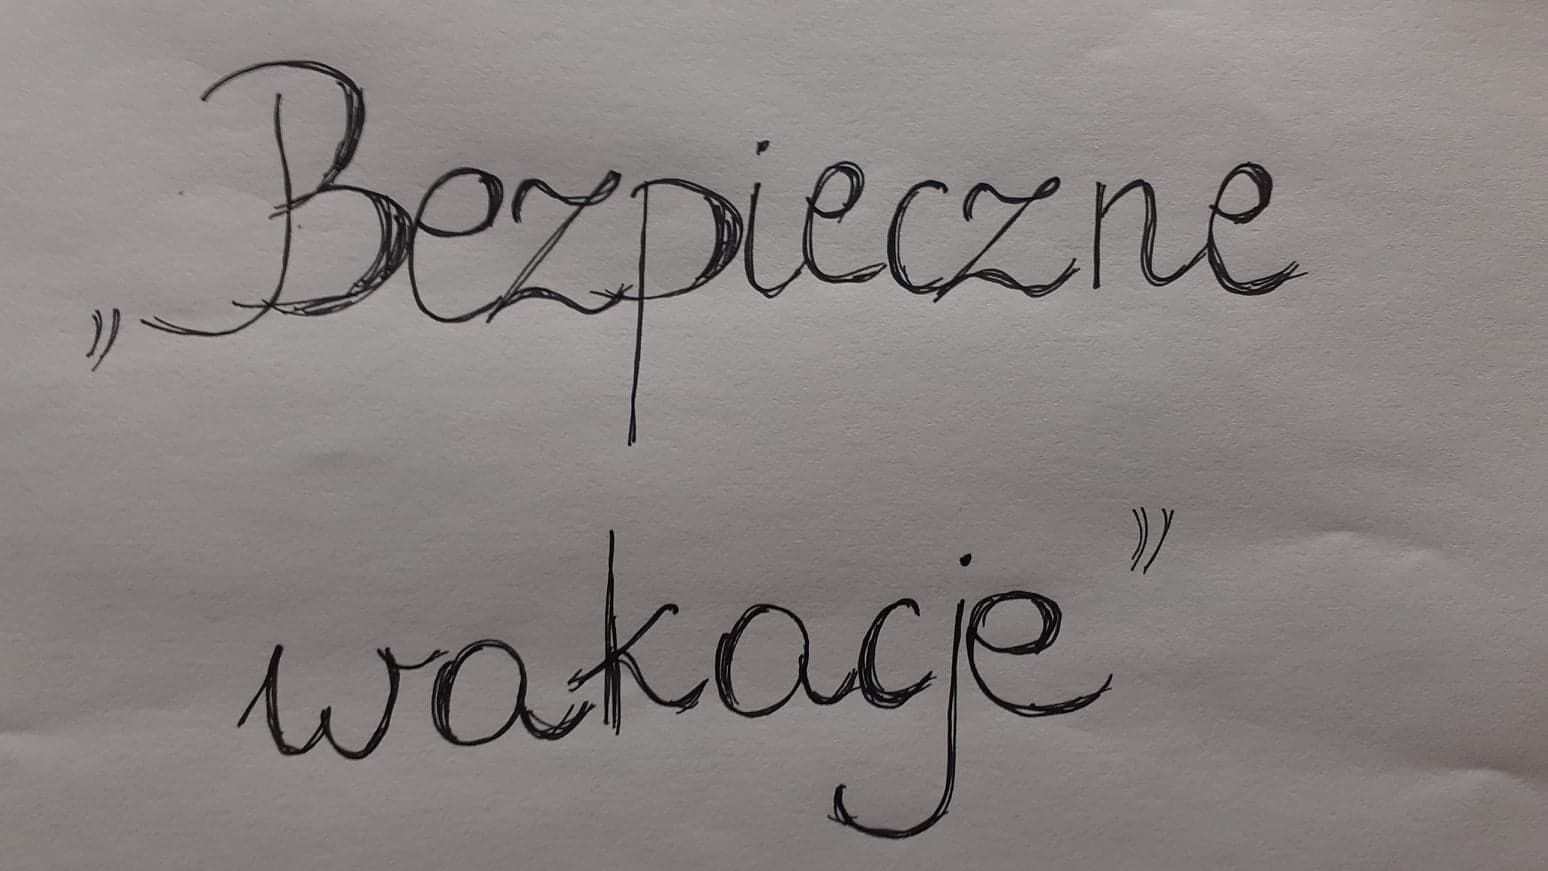 „Bezpieczne
wakacje”